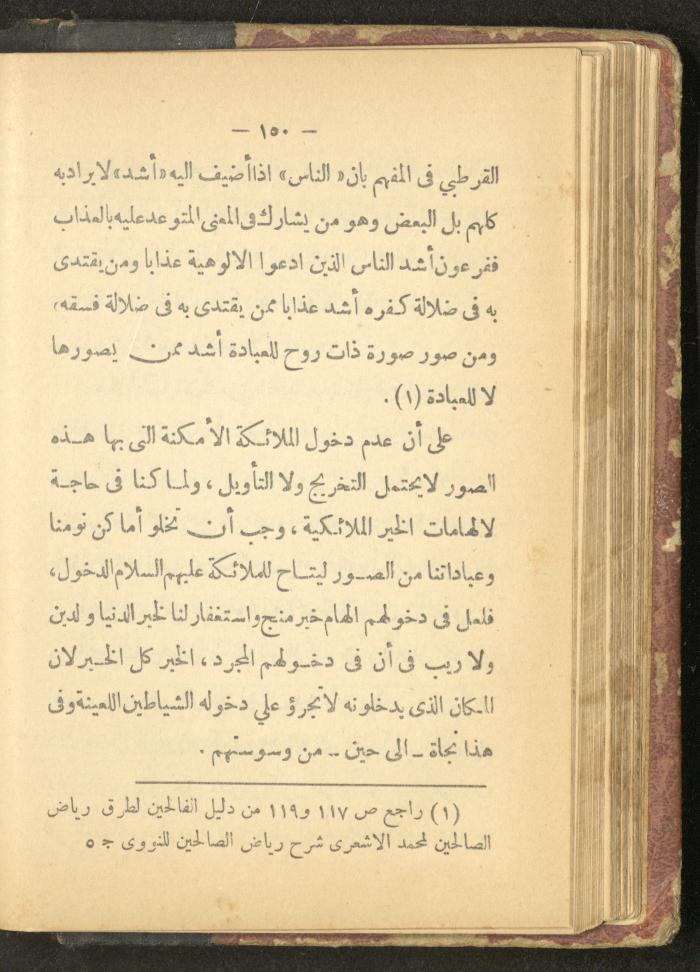 — ١٥٠ —
القرطبي فى المفهم بان « الناس » اذا أضيف اليه «أشد» لايراد به
كلهم بل البعض وهو من يشارك فى المعنى المتوعد عليه بالعذاب
ففرعون أشد الناس الذين ادعوا الالوهية عذابا ومن يقتدى
به فى ضلالة كفره أشد عذابا ممن يقتدى به فى ضلالة فسقه،
ومن صور صورة ذات روح للعبادة أشد ممن يصورها
لا للعبادة (١) .
على أن عدم دخول الملائكة الأمكنة التى بها هذه
الصور لايحتمل التخريج ولا التأويل ، ولما كنا فى حاجة
لالهامات الخير الملائكية ، وجب أن تخلو أماكن نومنا
وعباداتنا من الصور ليتاح للملائكة عليهم السلام الدخول،
فلعل فى دخولهم الهام خير منج واستغفار لنا لخير الدنيا و لدين
ولا ريب فى أن فى دخولهم المجرد ، الخير كل الخير لان
المكان الذى يدخلونه لاتجرؤ علي دخوله الشياطين اللعينة وفى
هذا نجاة ـ الى حين ـ من وسوستهم .
(١) راجع ص ١١٧ و١١٩ من دليل الفالحين لطرق رياض
الصالحين لمحمد الاشعرى شرح رياض الصالحين للنووى ج ٥